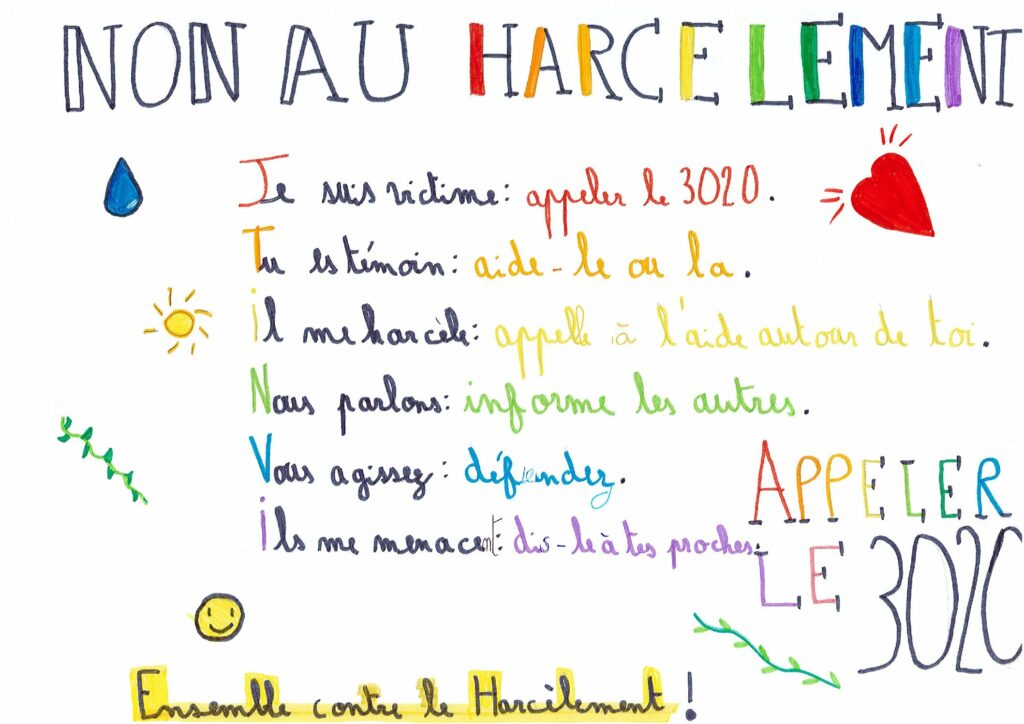 NON AU HARCELEMENT
Je suis victime: appeler le 3020.
Tu es témoin: aide-le ou la.
il me harcèle: appelle à l'aide autour de toi.
Nous parlons: informe les autres.
Vous agissez: défendez.
ils me menacent: dis-le à tes proches.
APPELER
LE 3020
Ensemble contre le Harcèlement!